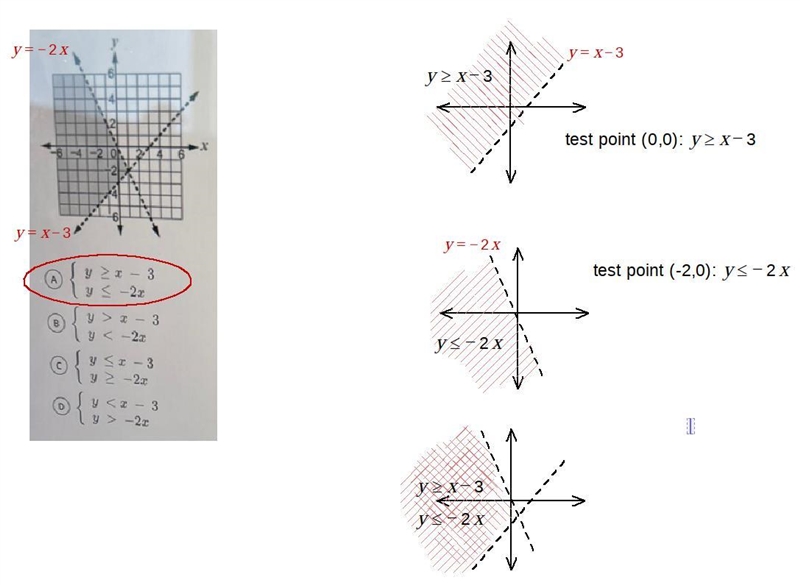 y = −2x
y
6
4
2
−6 −4 −2 0 2 4 6 x
−2
4
6
y = x−3
A { y ≥ x − 3
y ≤ −2x
B { y > x − 3
y < −2x
C { y ≤ x − 3
y ≥ −2x
D { y < x − 3
y > −2x
y = x−3
y ≥ x−3
test point (0,0): y ≥ x−3
y = −2x
test point (-2,0): y ≤ −2x
y ≤ −2x
y ≥ x−3
y ≤ −2x